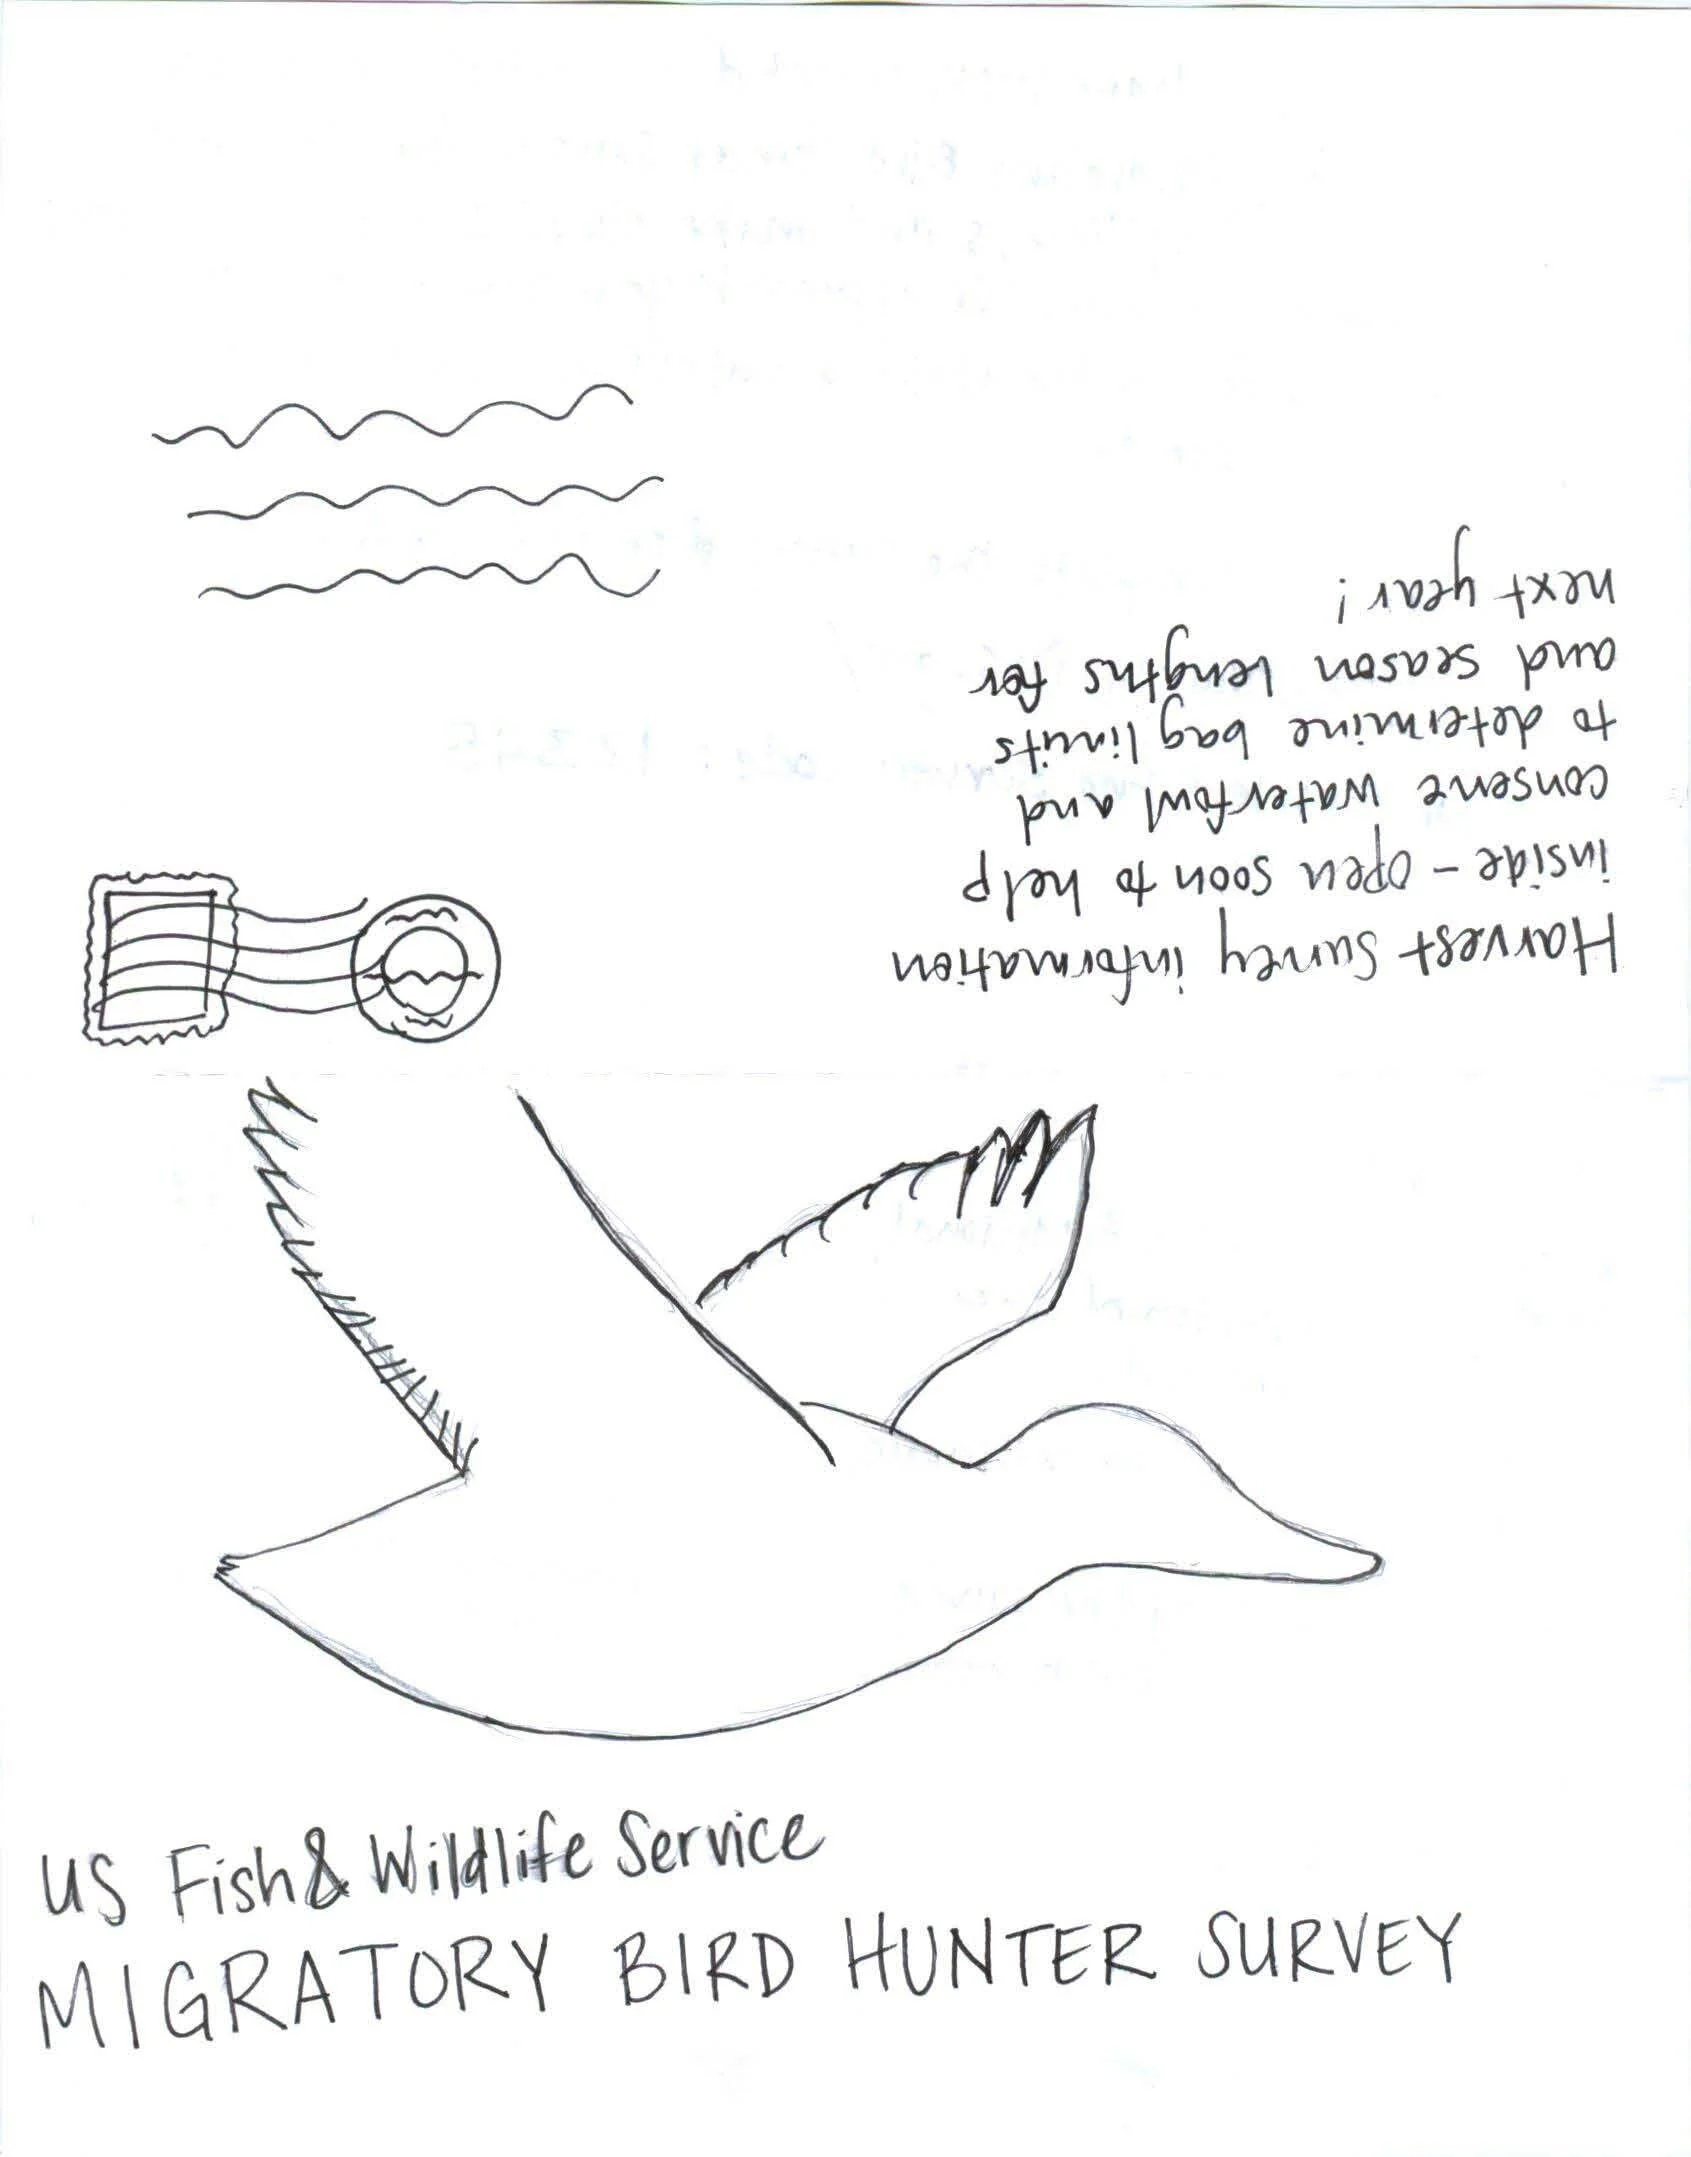 Harvest Survey information
inside - open soon to help
conserve waterfowl and
to determine bag limits
and season lengths for
next year!
US Fish & Wildlife Service
MIGRATORY BIRD HUNTER SURVEY